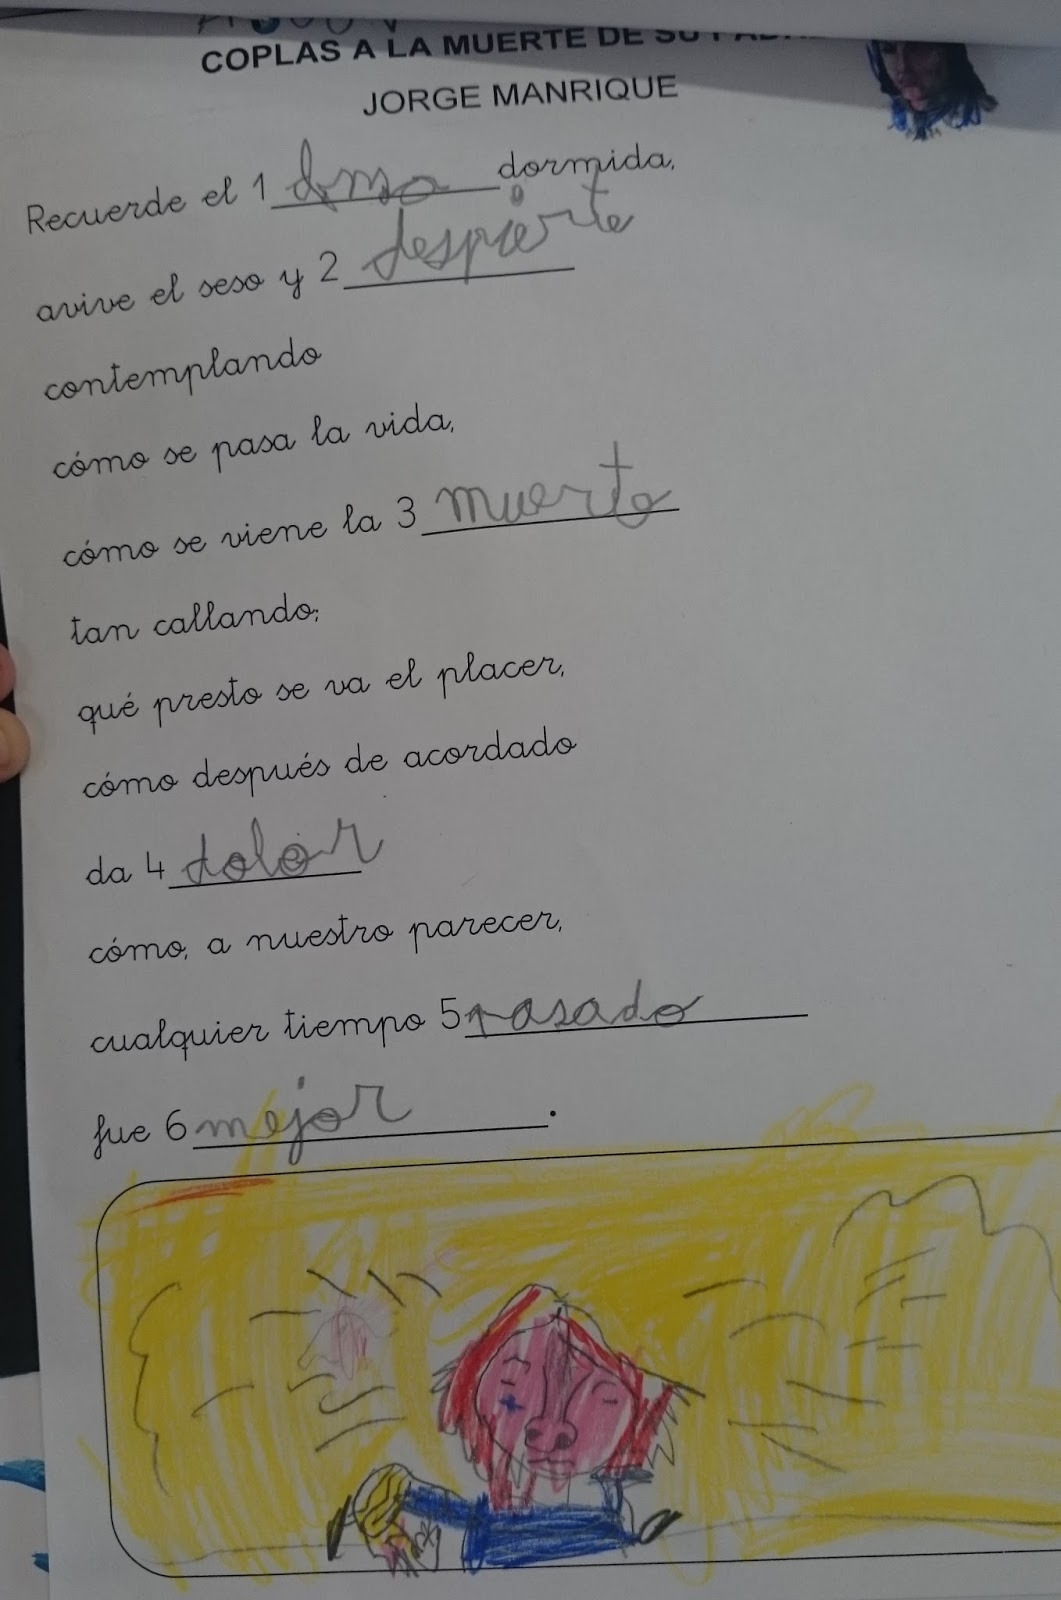 COPLAS A LA MUERTE DE SU PADRE
JORGE MANRIQUE
Recuerde el 1 dormida,
avive el seso y 2 despierte
contemplando
cómo se pasa la vida,
cómo se viene la 3 muerto
tan callando;
qué presto se va el placer,
cómo después de acordado
da 4 dolor
cómo, a nuestro parecer,
cualquier tiempo 5 pasado
fue 6 mejor.